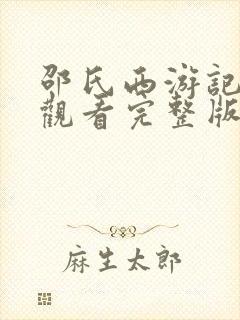 邵氏西游記
觀看完整版
麻生太郎